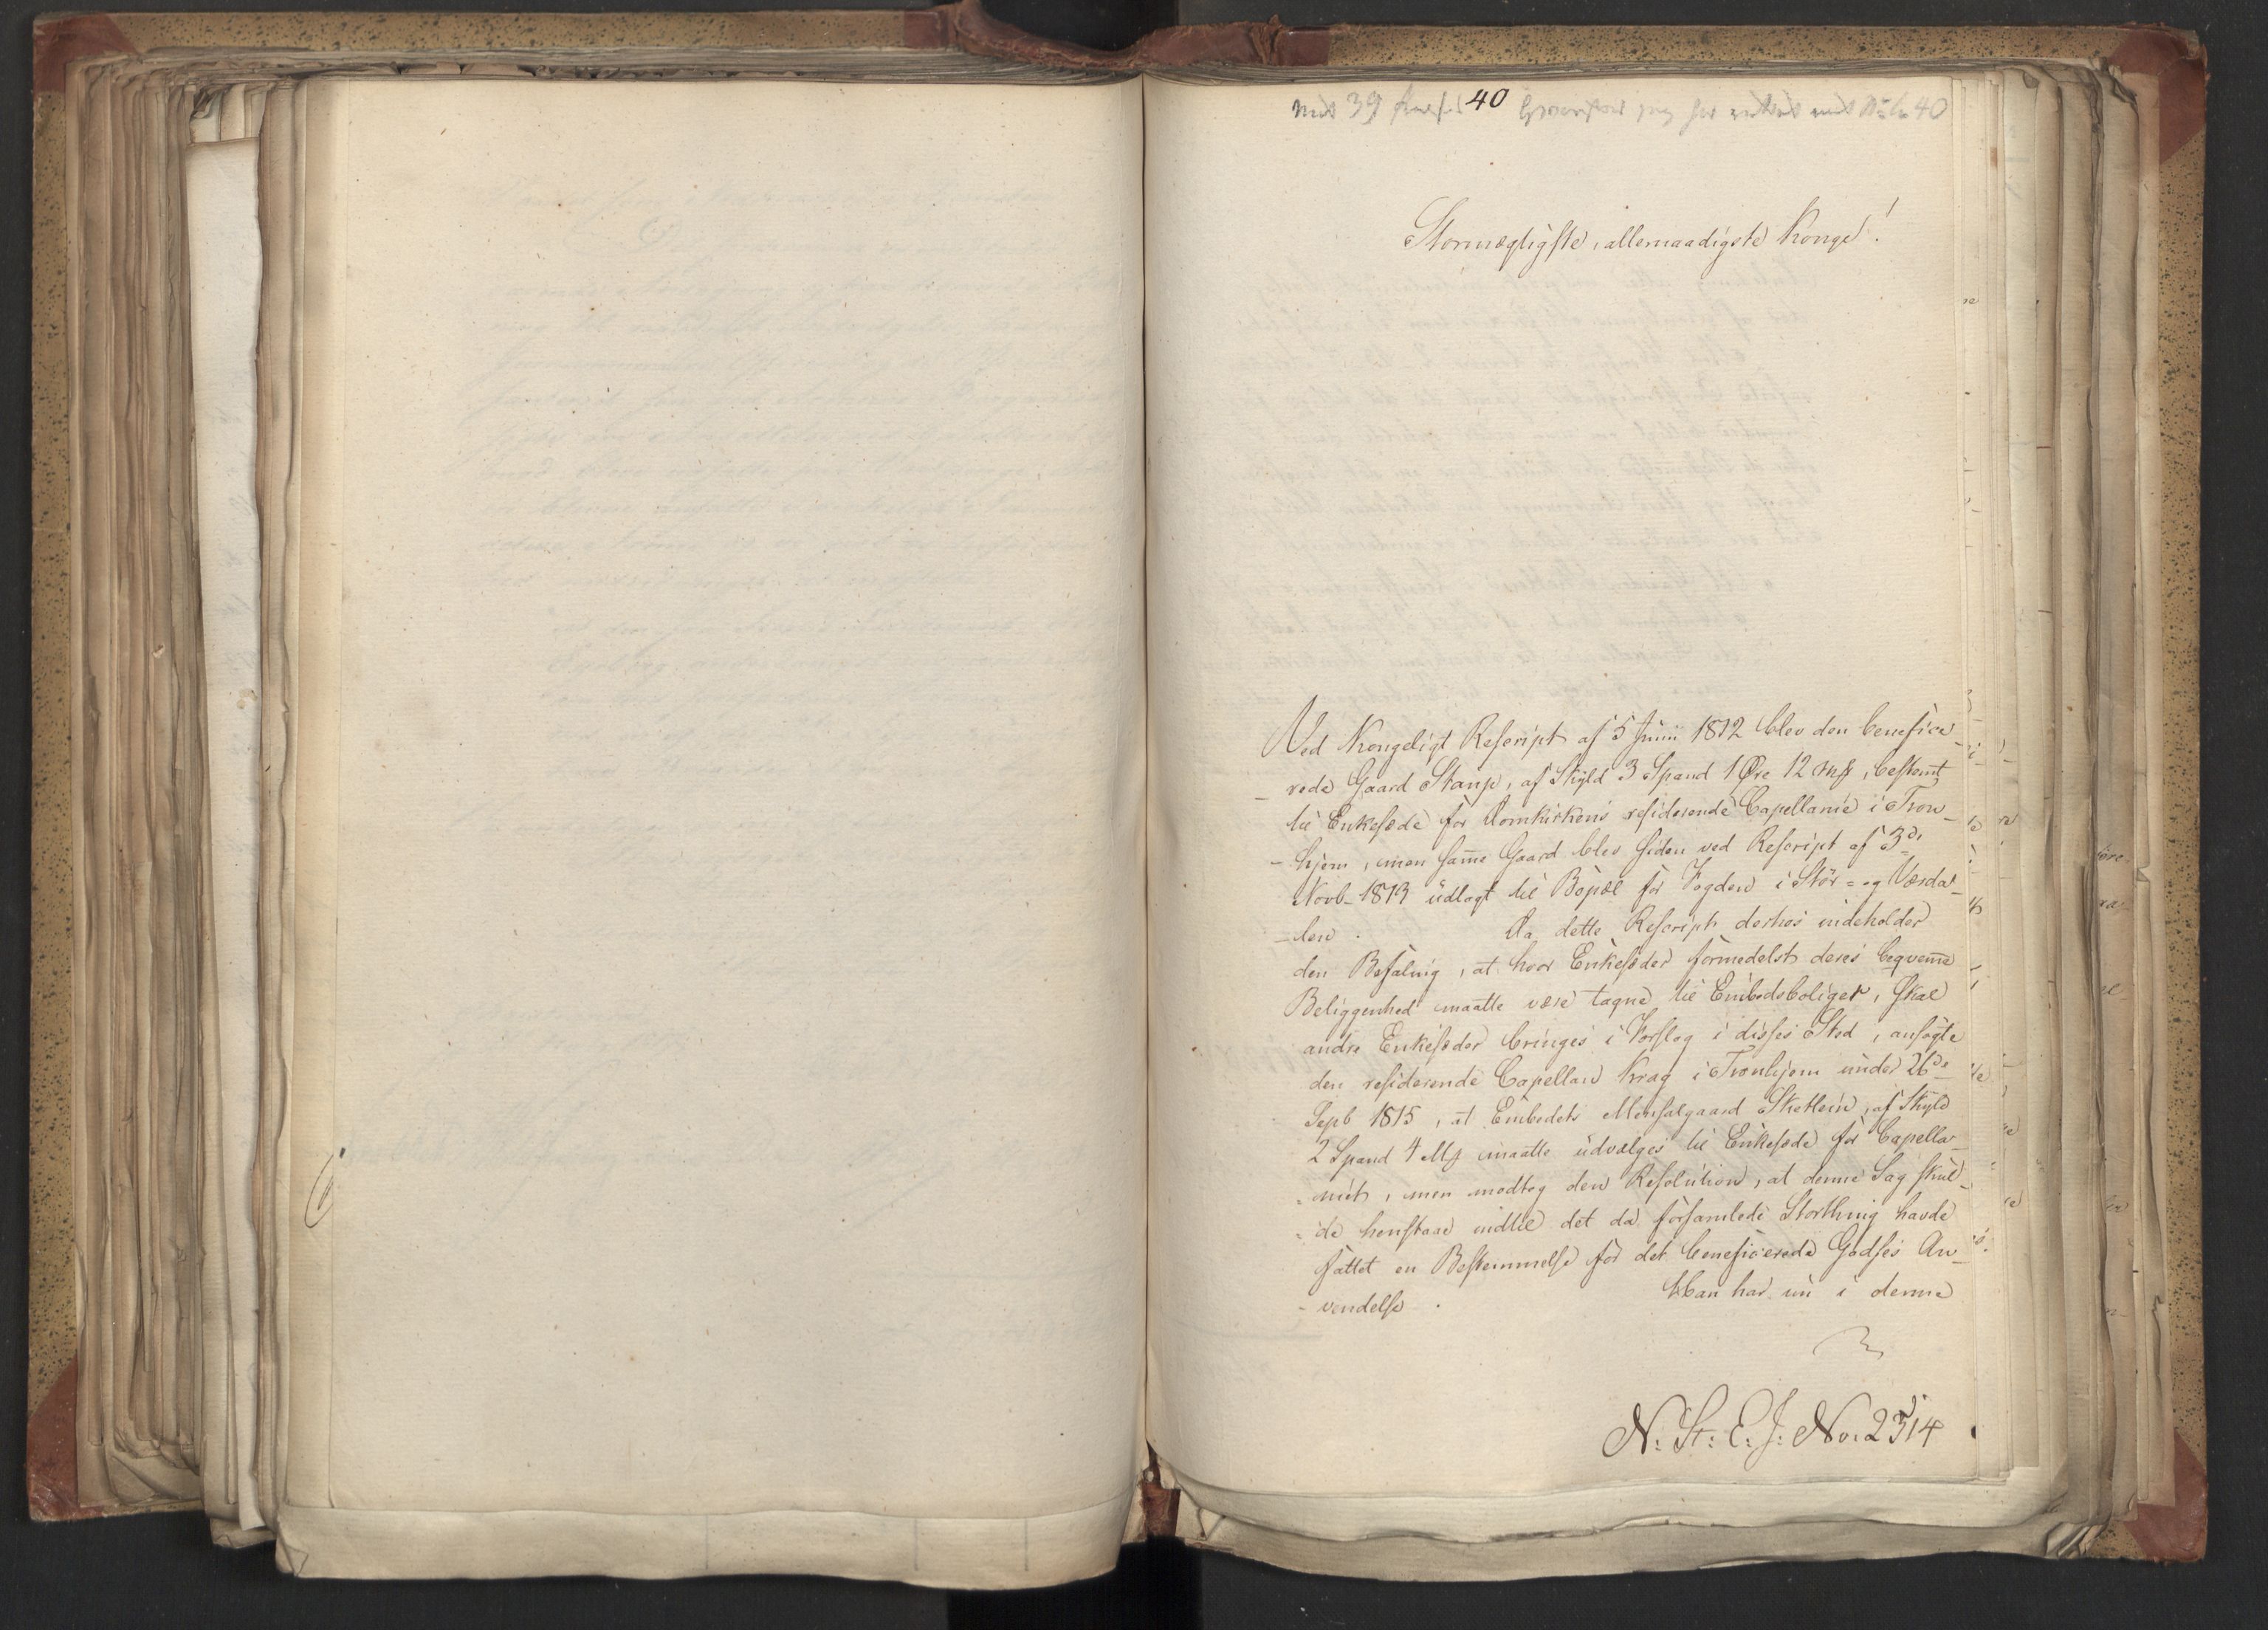 40
Stormægtigste, allernaadigste Konge!
Ved Kongeligt Rescript af 5 Junii 1812 blev den benefice
-rede Gaard Staup, af Skyld 3 Spand 1 Øre 12 Mk, bestemt
til Enkesæde for Domkirkens residerende Capellanie i Tron-
-hjem, men samme Gaard blev siden ved Rescript af 3de
Novb 1813 udlagt til Bopæl for Fogden i Stör- og Værda-
-len. Da dette Rescript derhos indeholder
den Befaling, at hvor Enkesæder formedelst deres beqvemme
Beliggenhed maatte være tagne til Embedsboliger, skal
andre Enkesæder bringes i Forslag i disses Sted, ansøgte
den residerende Capellan Krag i Tronhjem under 26de
Sept 1815, at Embedets Mensalgaard Sketlein, af Skyld
2 Spand 4 Mk maatte udvælges til Enkesæde for Capella-
-niet, men modtog den Resolution, at denne Sag skul-
-de henstaae indtil det da forsamlede Storthing havde
fattet en Bestemmelse for det beneficerede Godses An-
-vendelse. Man har nu i denne
N: St: E: J: No: 2514